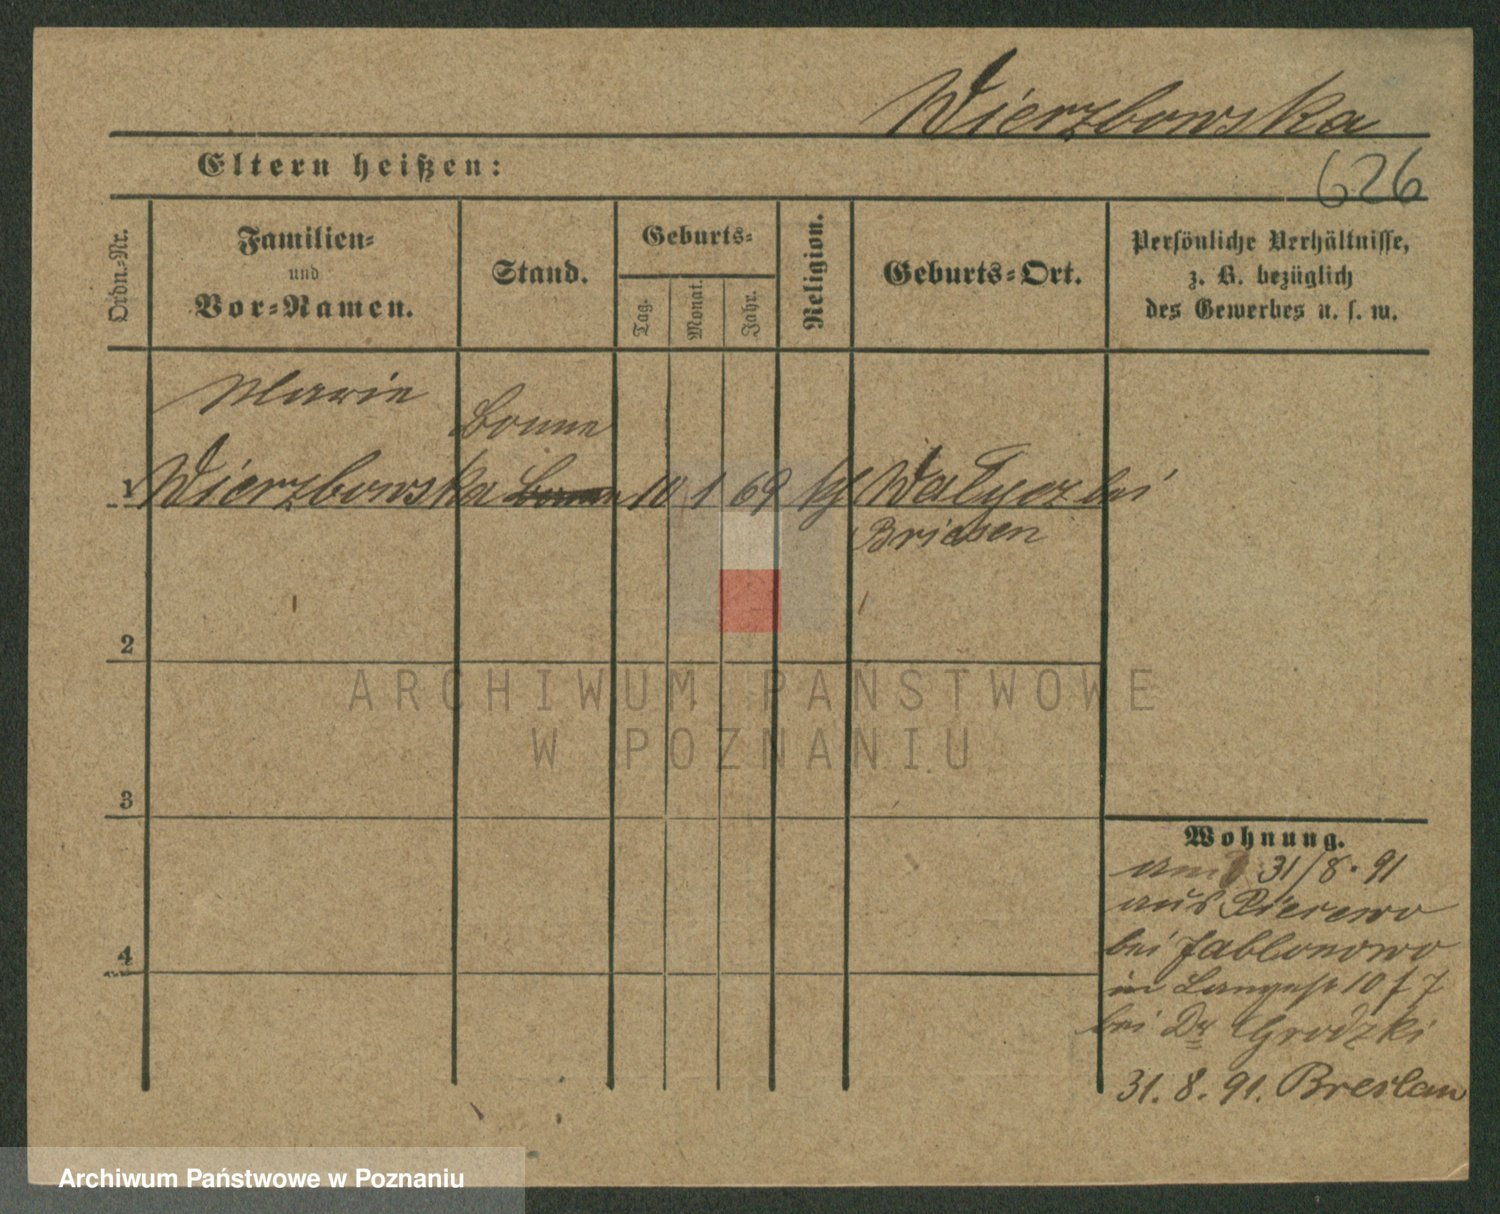 Wierzbowska
Eltern heißen:
626
Ordn.-Nr.
Familien-
und
Vor-Namen.
Stand.
Geburts-
Tag.
Monat.
Jahr.
Religion.
Geburts-Ort.
Persönliche Verhältnisse,
z. B. bezüglich
des Gewerbes u. s. w.
Marie
Bonne
1 Wierzbowska 10 1 69 kf Wałycz bei
Briesen
2
ARCHIWUM PAŃSTWOWE
W POZNANIU
3
Wohnung.
am 31/8. 91
aus
bei Jablonowo
in Langestr 10
4
bei Dr Grodzki
31. 8. 91. Breslau
Archiwum Państwowe w Poznaniu